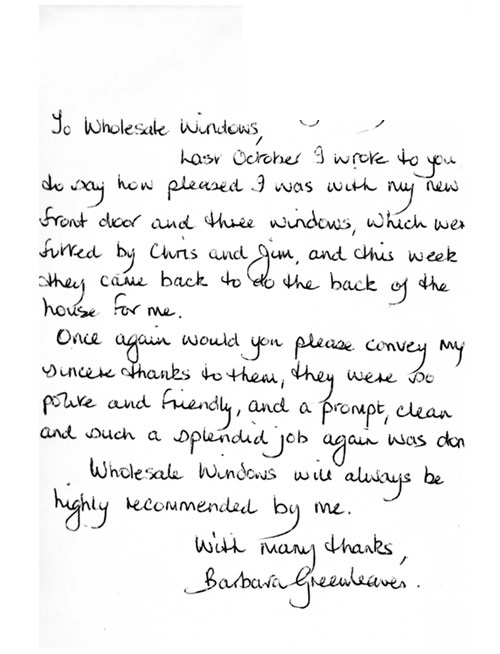 To Wholesale Windows,
Last October I wrote to you
to say how pleased I was with my new
front door and three windows, which wer
fitted by Chris and Jim, and this week
they came back to do the back of the
house for me.
Once again would you please convey my
sincere thanks to them, they were so
polite and friendly, and a prompt, clean
and such a splendid job again was don
Wholesale Windows will always be
highly recommended by me.
With many thanks,
Barbara Greenleaves.